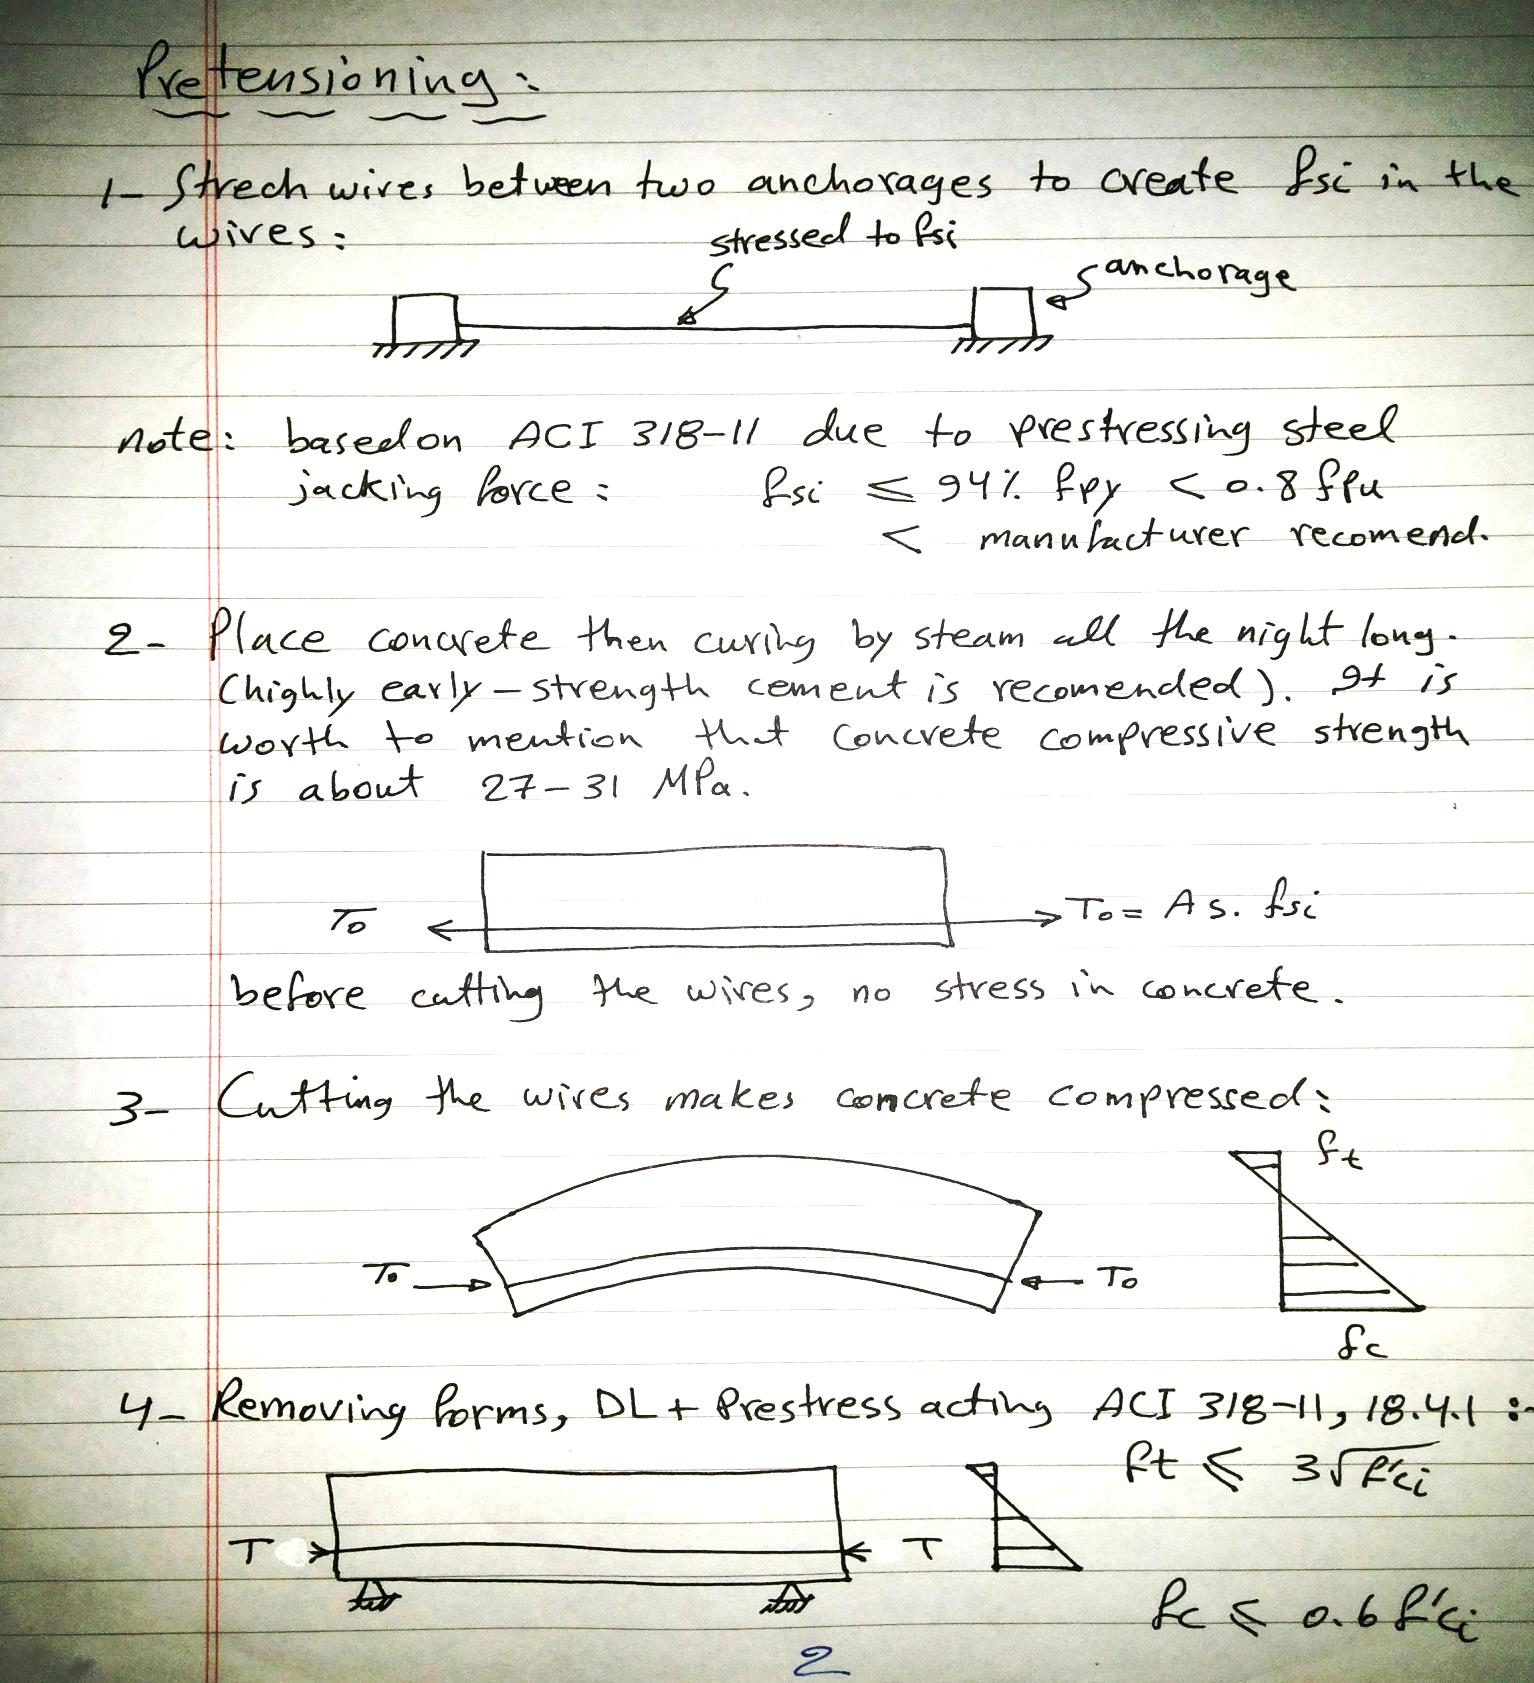 Pretensioning:
1- Strech wires between two anchorages to create fsi in the
wires:
stressed to fsi
anchorage
note: based on ACI 318-11 due to prestressing steel
jacking force: fsi ≤ 94% fpy < 0.8 fpu
< manufacturer recomend.
2- Place concrete then curing by steam all the night long.
(highly early-strength cement is recomended). It is
worth to mention that concrete compressive strength
is about 27-31 MPa.
To
To = As. fsi
before cutting the wires, no stress in concrete.
3- Cutting the wires makes concrete compressed:
ft
To
To
fc
4- Removing forms, DL + Prestress acting ACI 318-11, 18.4.1 :-
ft ≤ 3√f'ci
T
T
fc ≤ 0.6 f'ci
2